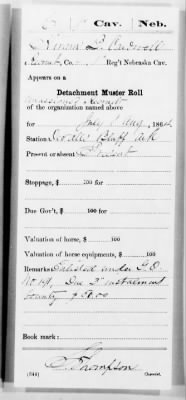 Cav. Neb.
Co. Reg't Nebraska Cav.
Appears on a
Detachment Muster Roll
Unassigned Recruits
of the organization named above
for July & Aug, 1864
Station Devalls Bluff Ark
Present or absent Present
Stoppage, $ 100 for
Due Gov't, $ 100 for
Valuation of horse, $ 100
Valuation of horse equipments, $ 100
Remarks: Enlisted under G.O.
No. 191, Due 1st instalment
bounty
Book mark:
Thompson
(644) Copyist.